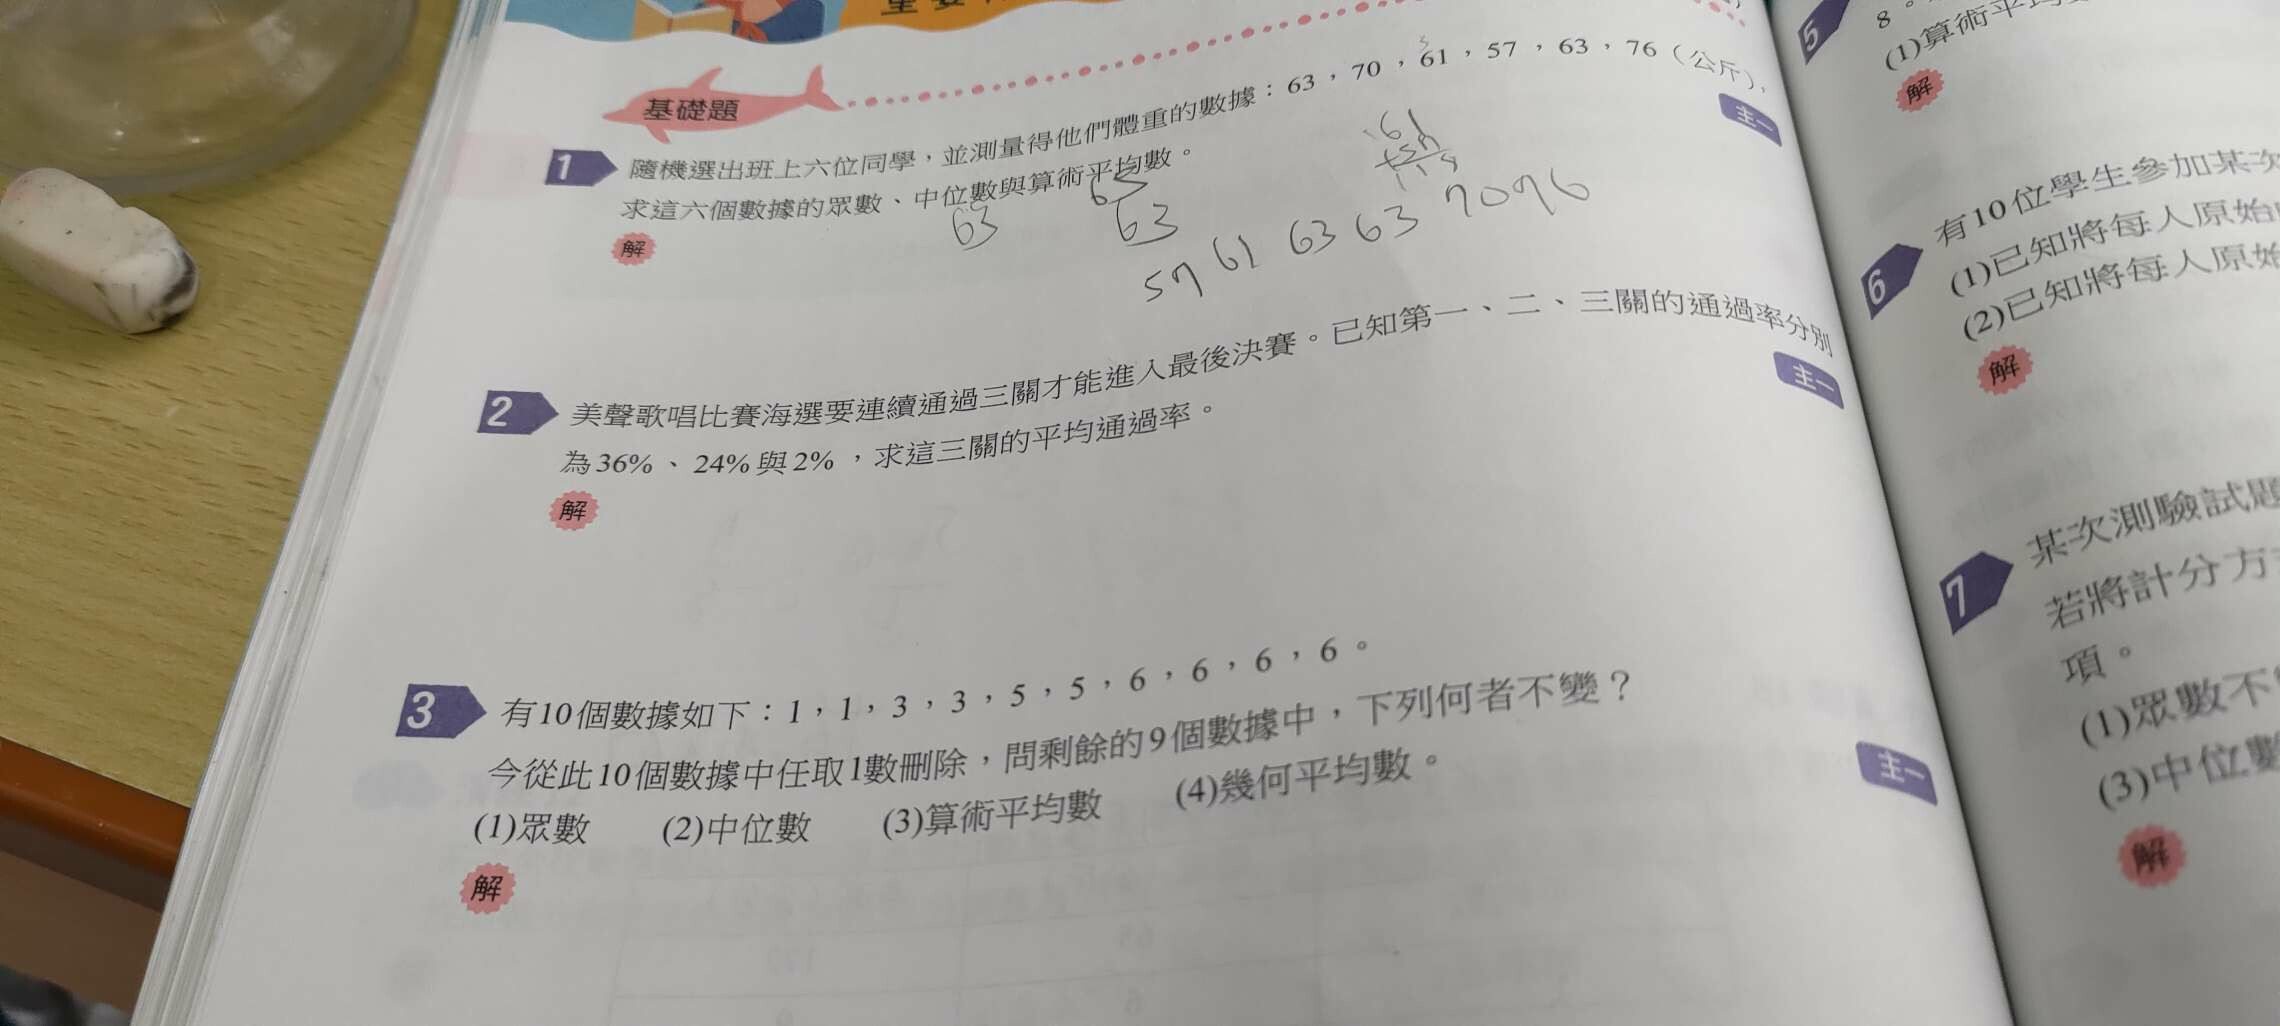 基礎題
1 隨機選出班上六位同學，並測量得他們體重的數據：63，70，61，57，63，76（公斤），
求這六個數據的眾數、中位數與算術平均數。
主一
解
63
65
63
61
57 61 63 63 70 76
2 美聲歌唱比賽海選要連續通過三關才能進入最後決賽。已知第一、二、三關的通過率分別
為36%、24%與2%，求這三關的平均通過率。
主一
解
3 有10個數據如下：1，1，3，3，5，5，6，6，6，6。
今從此10個數據中任取1數刪除，問剩餘的9個數據中，下列何者不變？
(1)眾數 (2)中位數 (3)算術平均數 (4)幾何平均數。
主一
解
5
8。
(1)算術平均
解
6 有10位學生參加某次
(1)已知將每人原始
(2)已知將每人原始
解
7 某次測驗試題
若將計分方
項。
(1)眾數不
(3)中位數
解